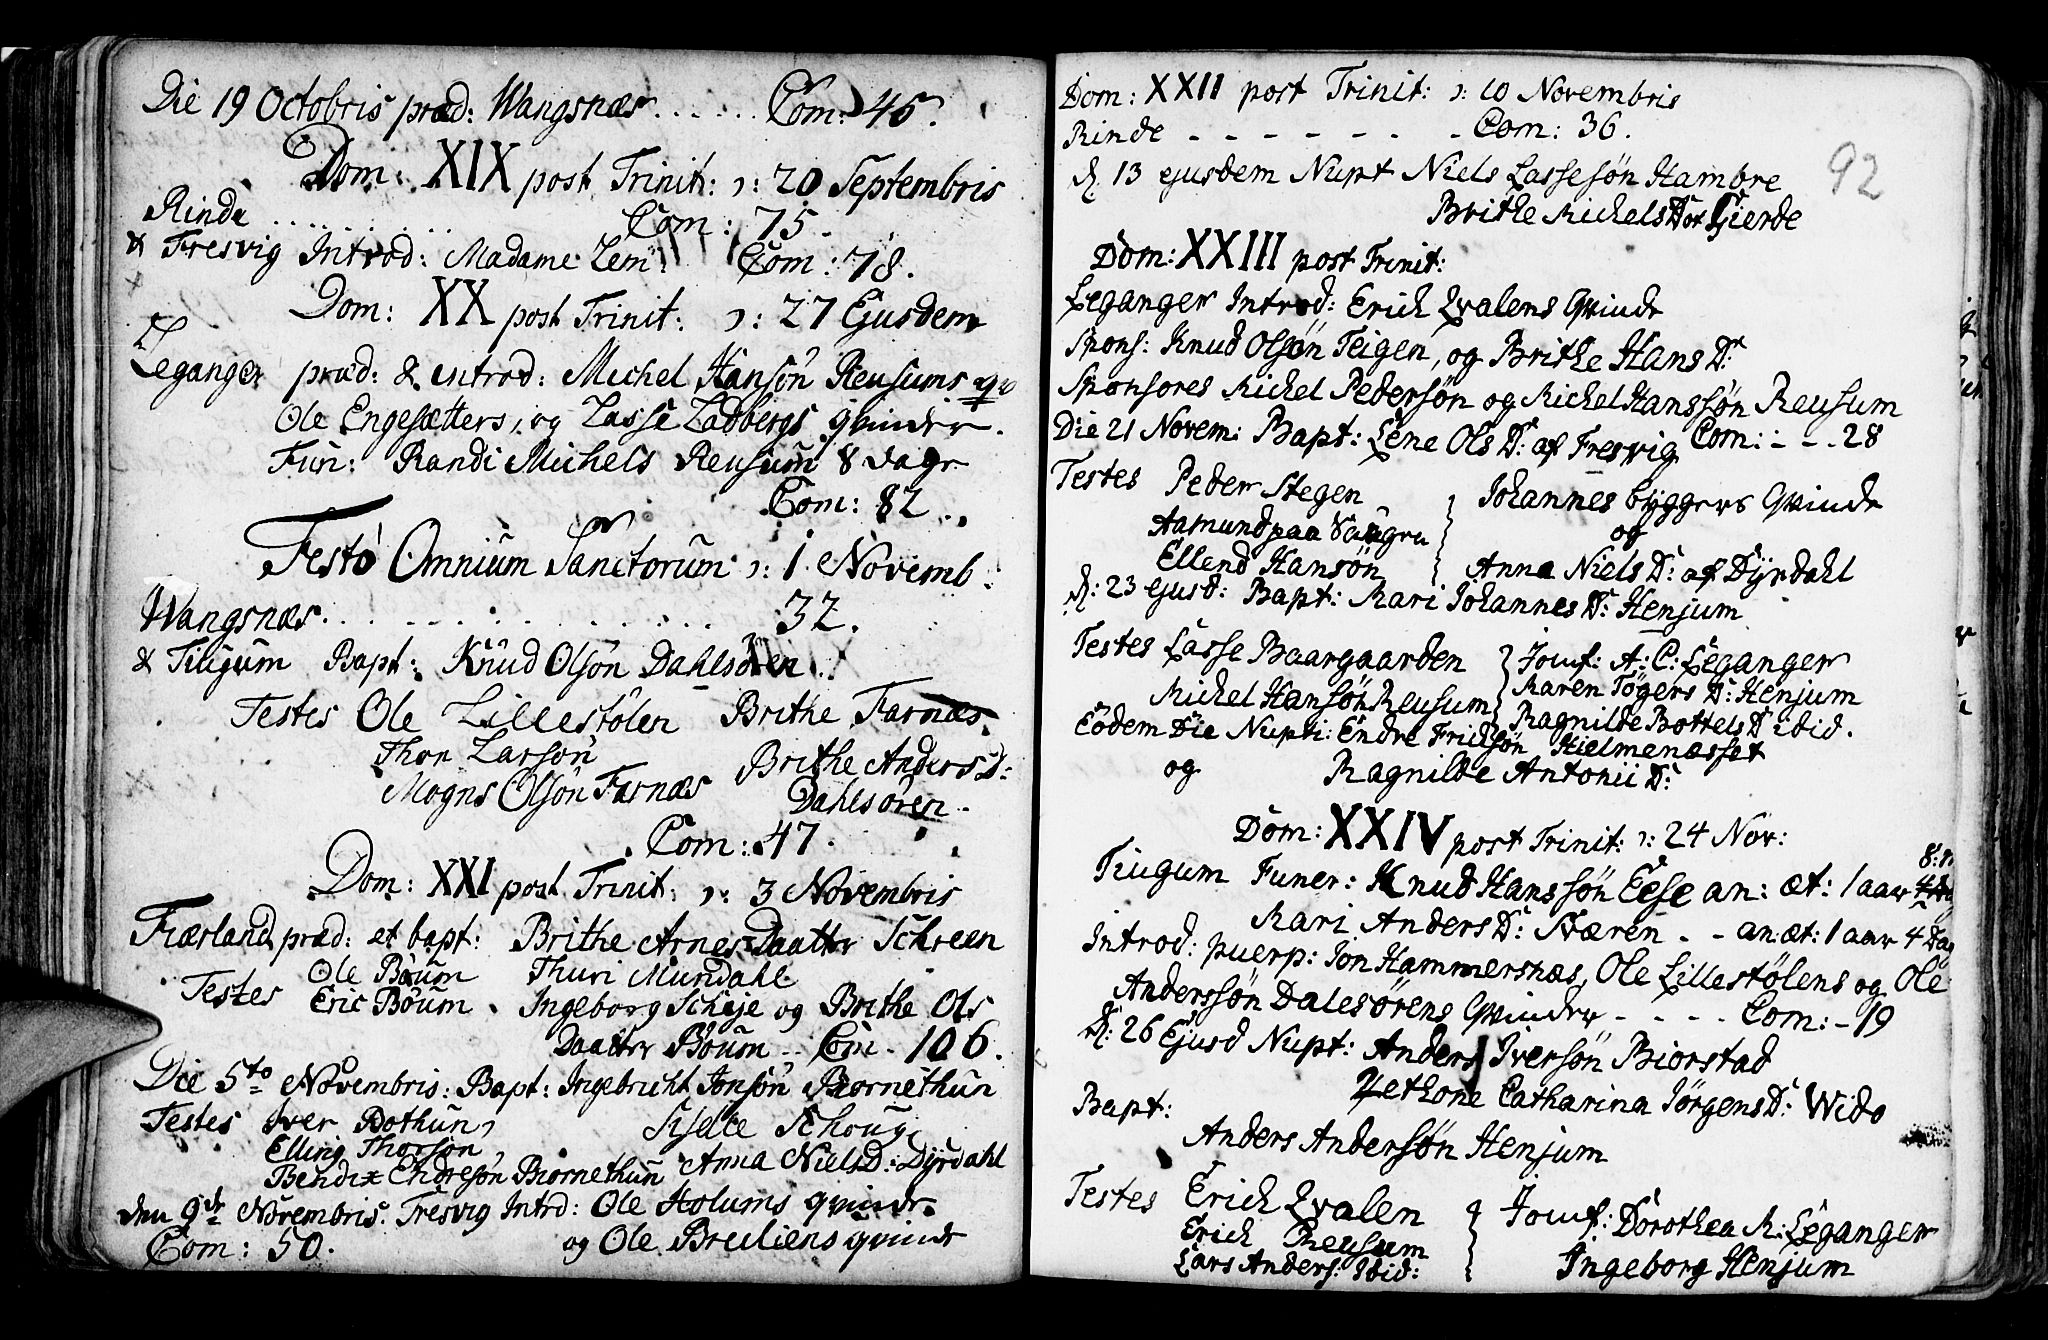 Die 19 Octobris præd: Wangsnæs . . . . . . Com: 45.
Dom: XIX post Trinit: ɔ: 20 Septembris
Rinde . . . . . . . . . Com: 75.
& Fresvig Introd: Madame Lem Com: 78.
Dom: XX post Trinit: ɔ: 27 Ejusdem
Leganger præd: & introd: Michel Hansøn Reusums
Ole Engesætters, og Lasse Ladbergs qvinder.
Fun: Randi Michels Reusum 8 dage
Com: 82.
Festo Omnium Sanctorum ɔ: 1. Novemb:
Wangsnæs . . . . . . . . . . . . 32.
& Tiugum Bapt: Knud Olsøn Dahlsøren
Testes Ole Lillestølen Brithe Farnæs
Thor Larsøn Brithe Anders D:
Mogns Olsøn Farnæs Dahlsøren.
Com: 47.
Dom: XXI post Trinit: ɔ: 3 Novembris
Fiærland præd: et bapt: Brithe Arnes Daatter Schreen
Testes Ole Bøum Thuri Mundahl
Eric Bøum. Ingeborg Scheje og Brithe Ols
Daatter Bøum . . Com. 106.
Die 5to Novembris: Bapt: Ingebricht Jonsøn Biornethun
Testes Iver Bothun, Siselle Schoug
Elling Thorsøn,
Bendix Endresøn Biornethun Anna Niels D: Dyrdahl
den 9de Novembris. Fresvig Intrd: Ole Holums qvinde
Com: 50. og Ole Breiliens qvinde
92
Dom: XXII post Trinit: ɔ: 10 Novembris
Rinde - - - - - - - Com: 36.
d. 13 ejusdem Nupt Niels Lassesøn Hambre
Brithe Michels Dor Gierde
Dom: XXIII post Trinit:
Leganger Introd: Erich Qvalens Qvinde
Spons: Knud Olsøn Teigen, og Brithe Hans D:
Sponsores Michel Pedersøn og Michel Hanssøn Reusum
Die 21 Novem: Bapt: Lene Ols D: af Fresvig Com: - - - 28
Testes Peder Stegen Johannes Byggers Qvinde
Aamund paa og
Ellend Hansøn Anna Niels D: af Dyrdahl
d: 23 ejusd: Bapt: Mari Johannes D: Henjum
Testes Lasse Baargaarden Jomf: A: C: Leganger
Michel Hansøn Reusum Maren Tøgers D: Henjum
Ragnilde Bottels D ibid.
Eodem Die Nupti: Endre Fricksøn Hielmenæsset
og Ragnilde Antonii D:
Dom: XXIV post Trinit: ɔ: 24 Nov:
Tiugum Funer: Knud Hanssøn Eese an: æt: 1 aar
Mari Anders D: Næren - - an: æt: 1 aar 4 Dag
Introd: puerp: Jon Hammersnæs, Ole Lillestølens og Ole
Anderssøn Dalesørens Qvinder - - - - Com: - 19
d: 26 Ejusd Nupt: Anders Iversøn Biorstad
Catharina Jørgens D: Wido
Bapt:
Anders Andersøn Henjum
Testes Erich Qvalen Jomf: Dorothea M: Leganger
Erich Reusum Ingeborg Henjum
Lars Anders: Ibid: